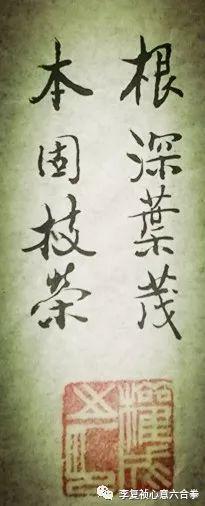 根深葉茂
本固枝榮
李复祯心意六合拳